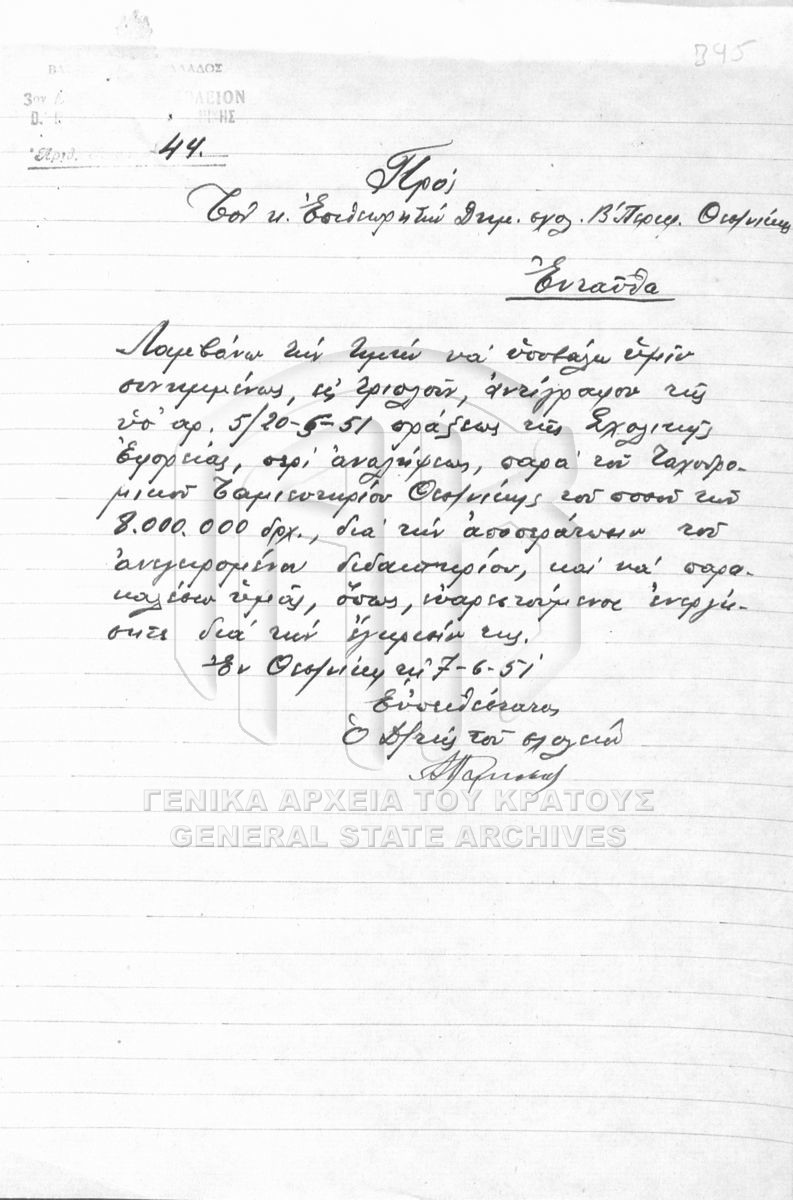 395
ΛΑΔΟΣ
3ον ΛΕΙΟΝ
Ἀριθ. 44.
Πρός
Τόν κ. Ἐπιθεωρητήν Δημ. σχολ. Β' Περιφ. Θεσ/νίκης
Ἐνταῦθα
Λαμβάνω τήν τιμήν νά ὑποβάλω ὑμῖν
συνημμένως, εἰς τριπλοῦν, ἀντίγραφον τῆς
ὑπ' αρ. 5/20-5-51 πράξεως τῆς Σχολικῆς
Ἐφορείας, περί ἀναλήψεως, παρά τοῦ Ταχυδρο-
μικοῦ Ταμιευτηρίου Θεσ/νίκης τοῦ ποσοῦ τῶν
8.000.000 δρχ., διά τήν ἀποπεράτωσιν τοῦ
ἀνεγειρομένου διδακτηρίου, καί νά παρα-
καλέσω ὑμᾶς, ὅπως, εὐαρεστούμενος ἐνεργή-
σητε διά τήν ἔγκρισίν της.
Ἐν Θεσ/νίκῃ τῇ 7-6-51
Εὐπειθέστατος
Ὁ Δ/τής τοῦ σχολείου
ΓΕΝΙΚΑ ΑΡΧΕΙΑ ΤΟΥ ΚΡΑΤΟΥΣ
GENERAL STATE ARCHIVES